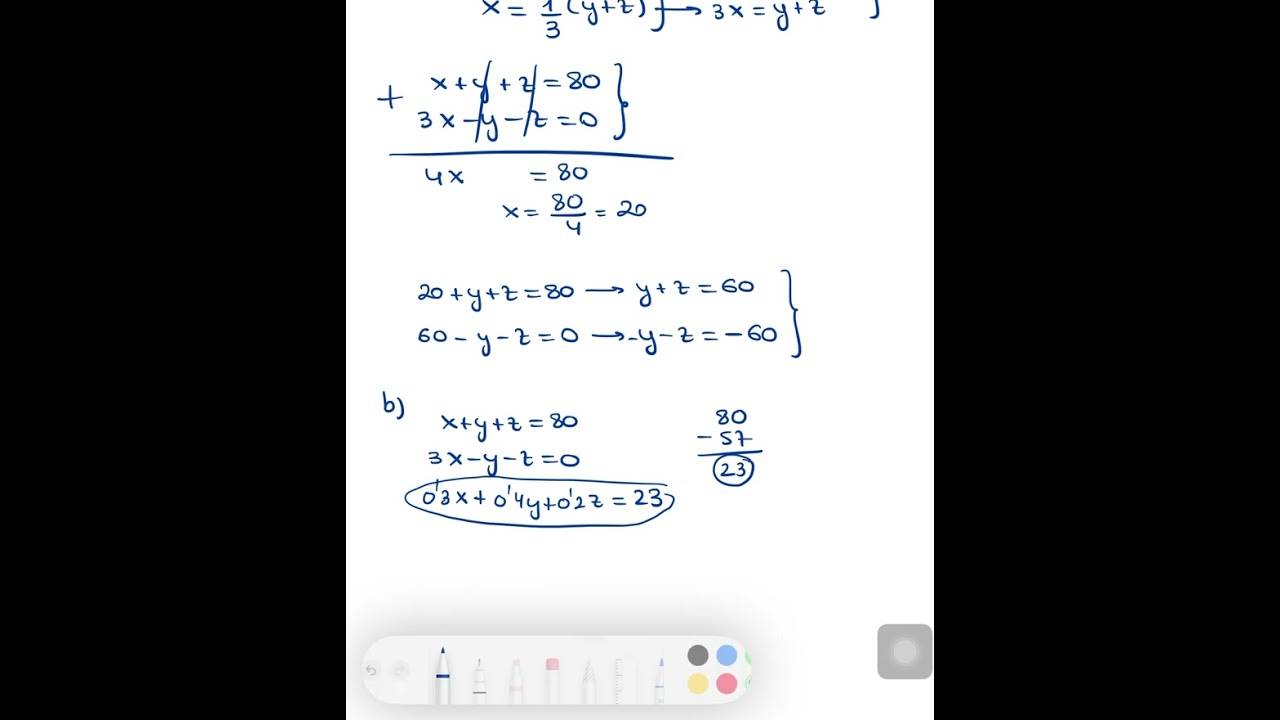 x = 1/3 (y+z) } → 3x = y+z }
x+y+z = 80 }
+ 3x-y-z = 0
4x = 80
x = 80/4 = 20
20+y+z = 80 → y+z = 60 }
60-y-z = 0 → -y-z = -60
b)
x+y+z = 80
3x-y-z = 0
0'3x+0'4y+0'2z = 23
80
- 57
23